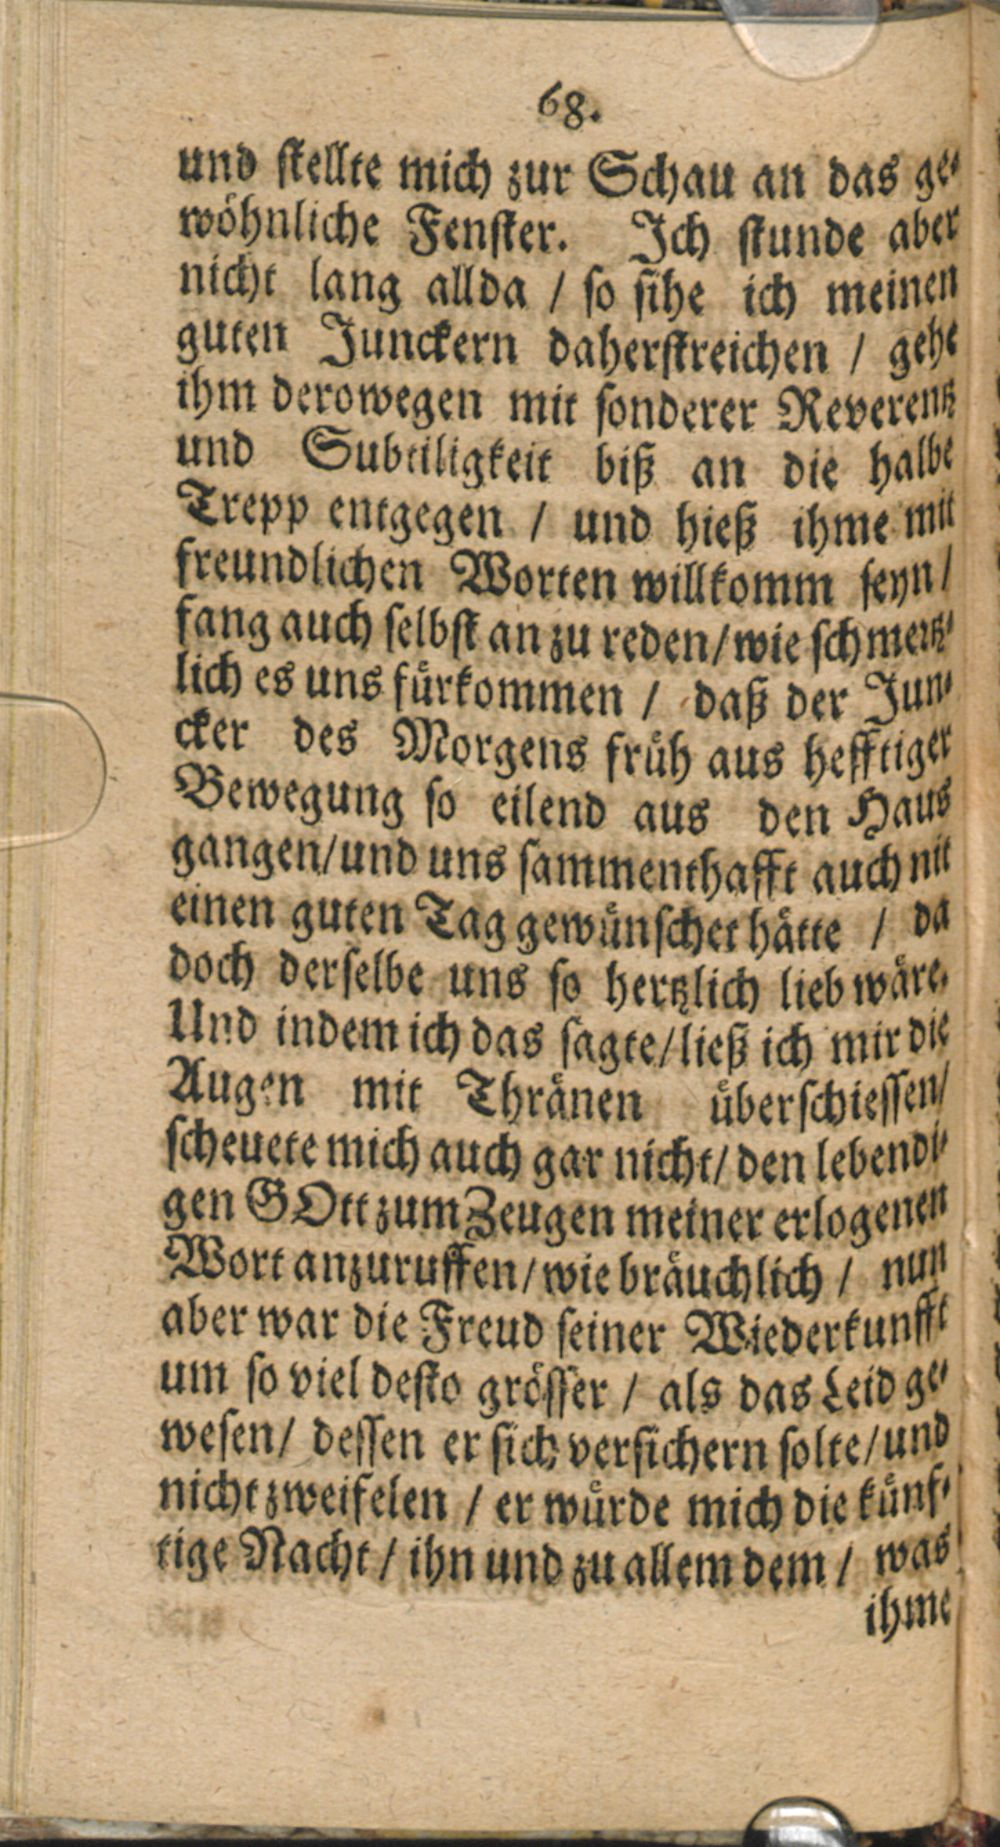 68.
und stellte mich zur Schau an das ge-
wöhnliche Fenster. Ich stunde aber
nicht lang allda / so sihe ich meinen
guten Junckern daherstreichen / gehe
ihm derowegen mit sonderer Reverentz
und Subtiligkeit biß an die halbe
Trepp entgegen / und hieß ihme mit
freundlichen Worten willkomm seyn /
fang auch selbst an zu reden / wie schmertz-
lich es uns fürkommen / daß der Jun-
cker des Morgens früh aus hefftiger
Bewegung so eilend aus den Haus
gangen / und uns sammenthafft auch nit
einen guten Tag gewünschet hätte / da
doch derselbe uns so hertzlich lieb wäre.
Und indem ich das sagte / ließ ich mir die
Augen mit Thränen überschiessen /
scheuete mich auch gar nicht / den lebendi-
gen GOtt zum Zeugen meiner erlogenen
Wort anzuruffen / wie bräuchlich / nun
aber war die Freud seiner Wiederkunfft
um so viel desto grösser / als das Leid ge-
wesen / dessen er sich versichern solte / und
nicht zweifelen / er würde mich die künf-
tige Nacht / ihn und zu allem dem / was
ihme